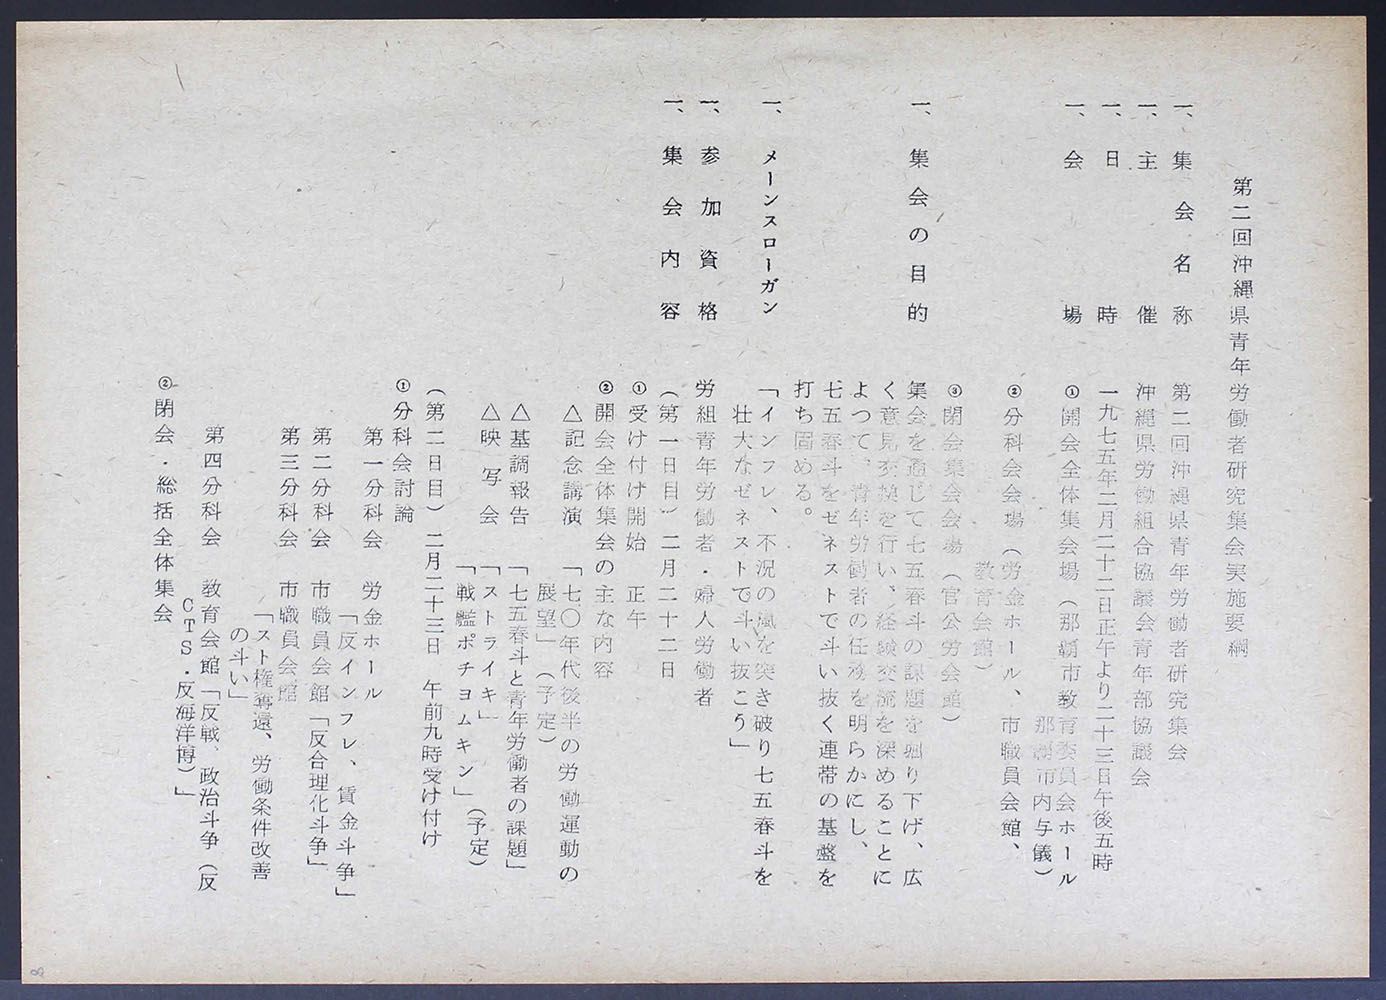 第二回沖縄県青年労働者研究集会実施要綱
一、集会名称 第二回沖縄県青年労働者研究集会
一、主催 沖縄県労働組合協議会青年部協議会
一、日時 一九七五年二月二十二日正午より二十三日午後五時
一、会場 ①開会全体集会場(那覇市教育委員会ホール
那覇市内与儀)
②分科会会場(労金ホール、市職員会館、
教育会館)
③閉会集会会場(官公労会館)
一、集会の目的 集会を通じて七五春斗の課題を掘り下げ、広
く意見交換を行い、経験交流を深めることに
よつて、青年労働者の任務を明らかにし、
七五春斗をゼネストで斗い抜く連帯の基盤を
打ち固める。
一、メーンスローガン 「インフレ、不況の嵐を突き破り七五春斗を
壮大なゼネストで斗い抜こう」
一、参加資格 労組青年労働者・婦人労働者
一、集会内容 (第一日目)二月二十二日
①受け付け開始 正午
②開会全体集会の主な内容
△記念講演 「七〇年代後半の労働運動の
展望」(予定)
△基調報告 「七五春斗と青年労働者の課題」
△映写会 「ストライキ」
「戦艦ポチョムキン」(予定)
(第二日目)二月二十三日 午前九時受け付け
①分科会討論
第一分科会 労金ホール
「反インフレ、賃金斗争」
第二分科会 市職員会館「反合理化斗争」
第三分科会 市職員会館
「スト権奪還、労働条件改善
の斗い」
第四分科会 教育会館「反戦、政治斗争(反
CTS・反海洋博)」
②閉会・総括全体集会